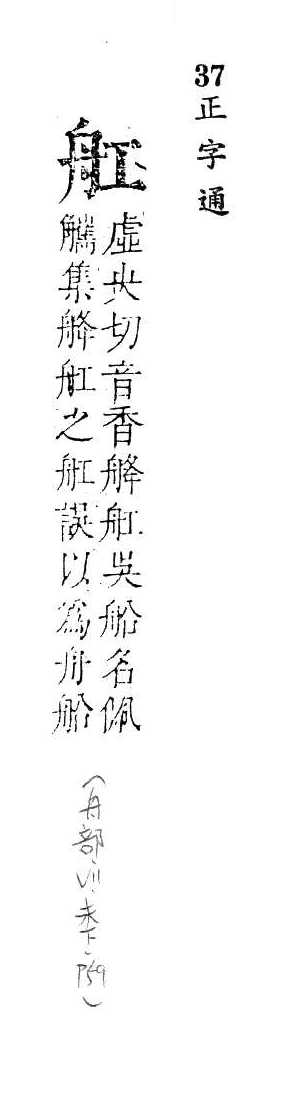 37
正字通
舡
虛央切音香舽舡吳船名佩
觿集舽舡之舡誤以為舟船
(舟部、VII、未下、P59)